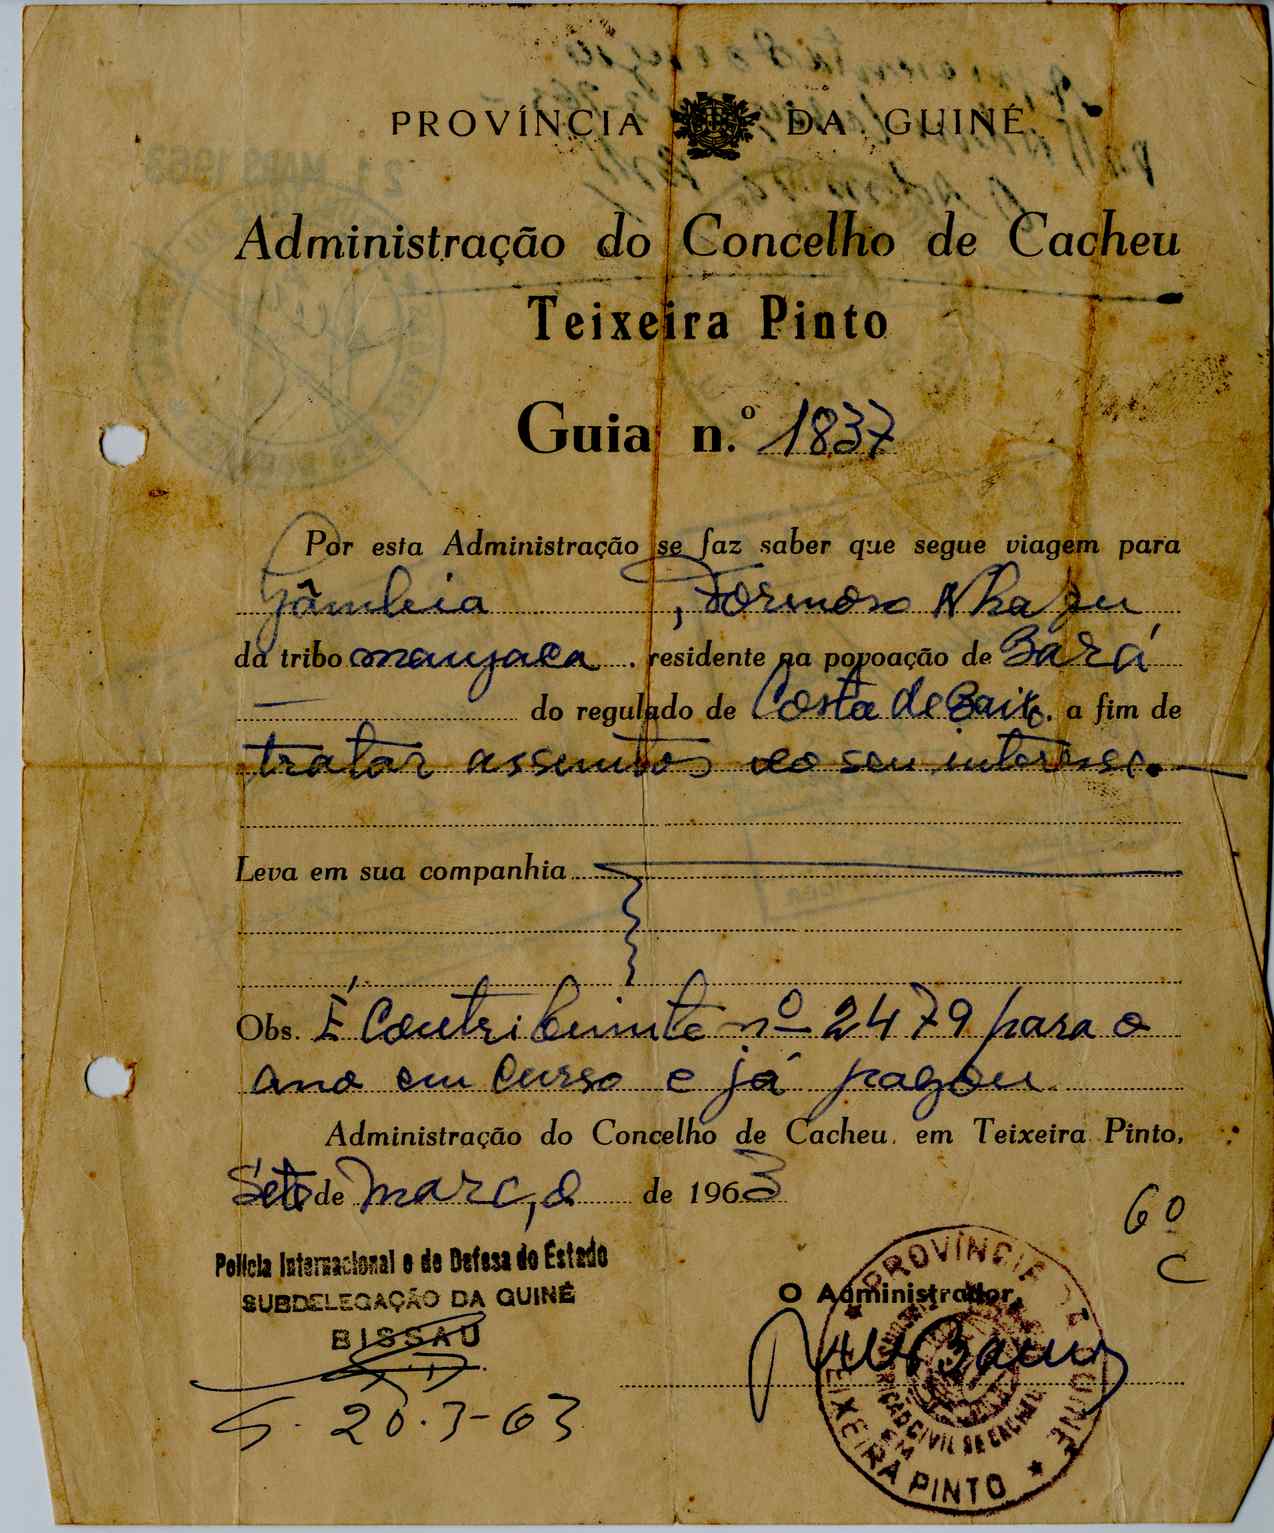 PROVÍNCIA DA GUINÉ
Administração do Concelho de Cacheu
Teixeira Pinto
Guia n.º 1837
Por esta Administração se faz saber que segue viagem para
Gâmbia, Formoso Nhapu
da tribo manjaca. residente na popoação de Bará
— do regulado de Costa de Baixo. a fim de
tratar assuntos do seu interesse.—
Leva em sua companhia
Obs. É Contribuinte nº 2479 para o
ano em curso e já pagou.
Administração do Concelho de Cacheu, em Teixeira Pinto,
Sete de Março de 1963
60
C
Polícia Internacional e de Defesa do Estado
SUBDELEGAÇÃO DA GUINÉ
BISSAU
20-3-63
O Administrador,
PROVÍNCIA DA GUINÉ
CIVIL DE CACHEU
EM
TEIXEIRA PINTO
21 MARS 1963